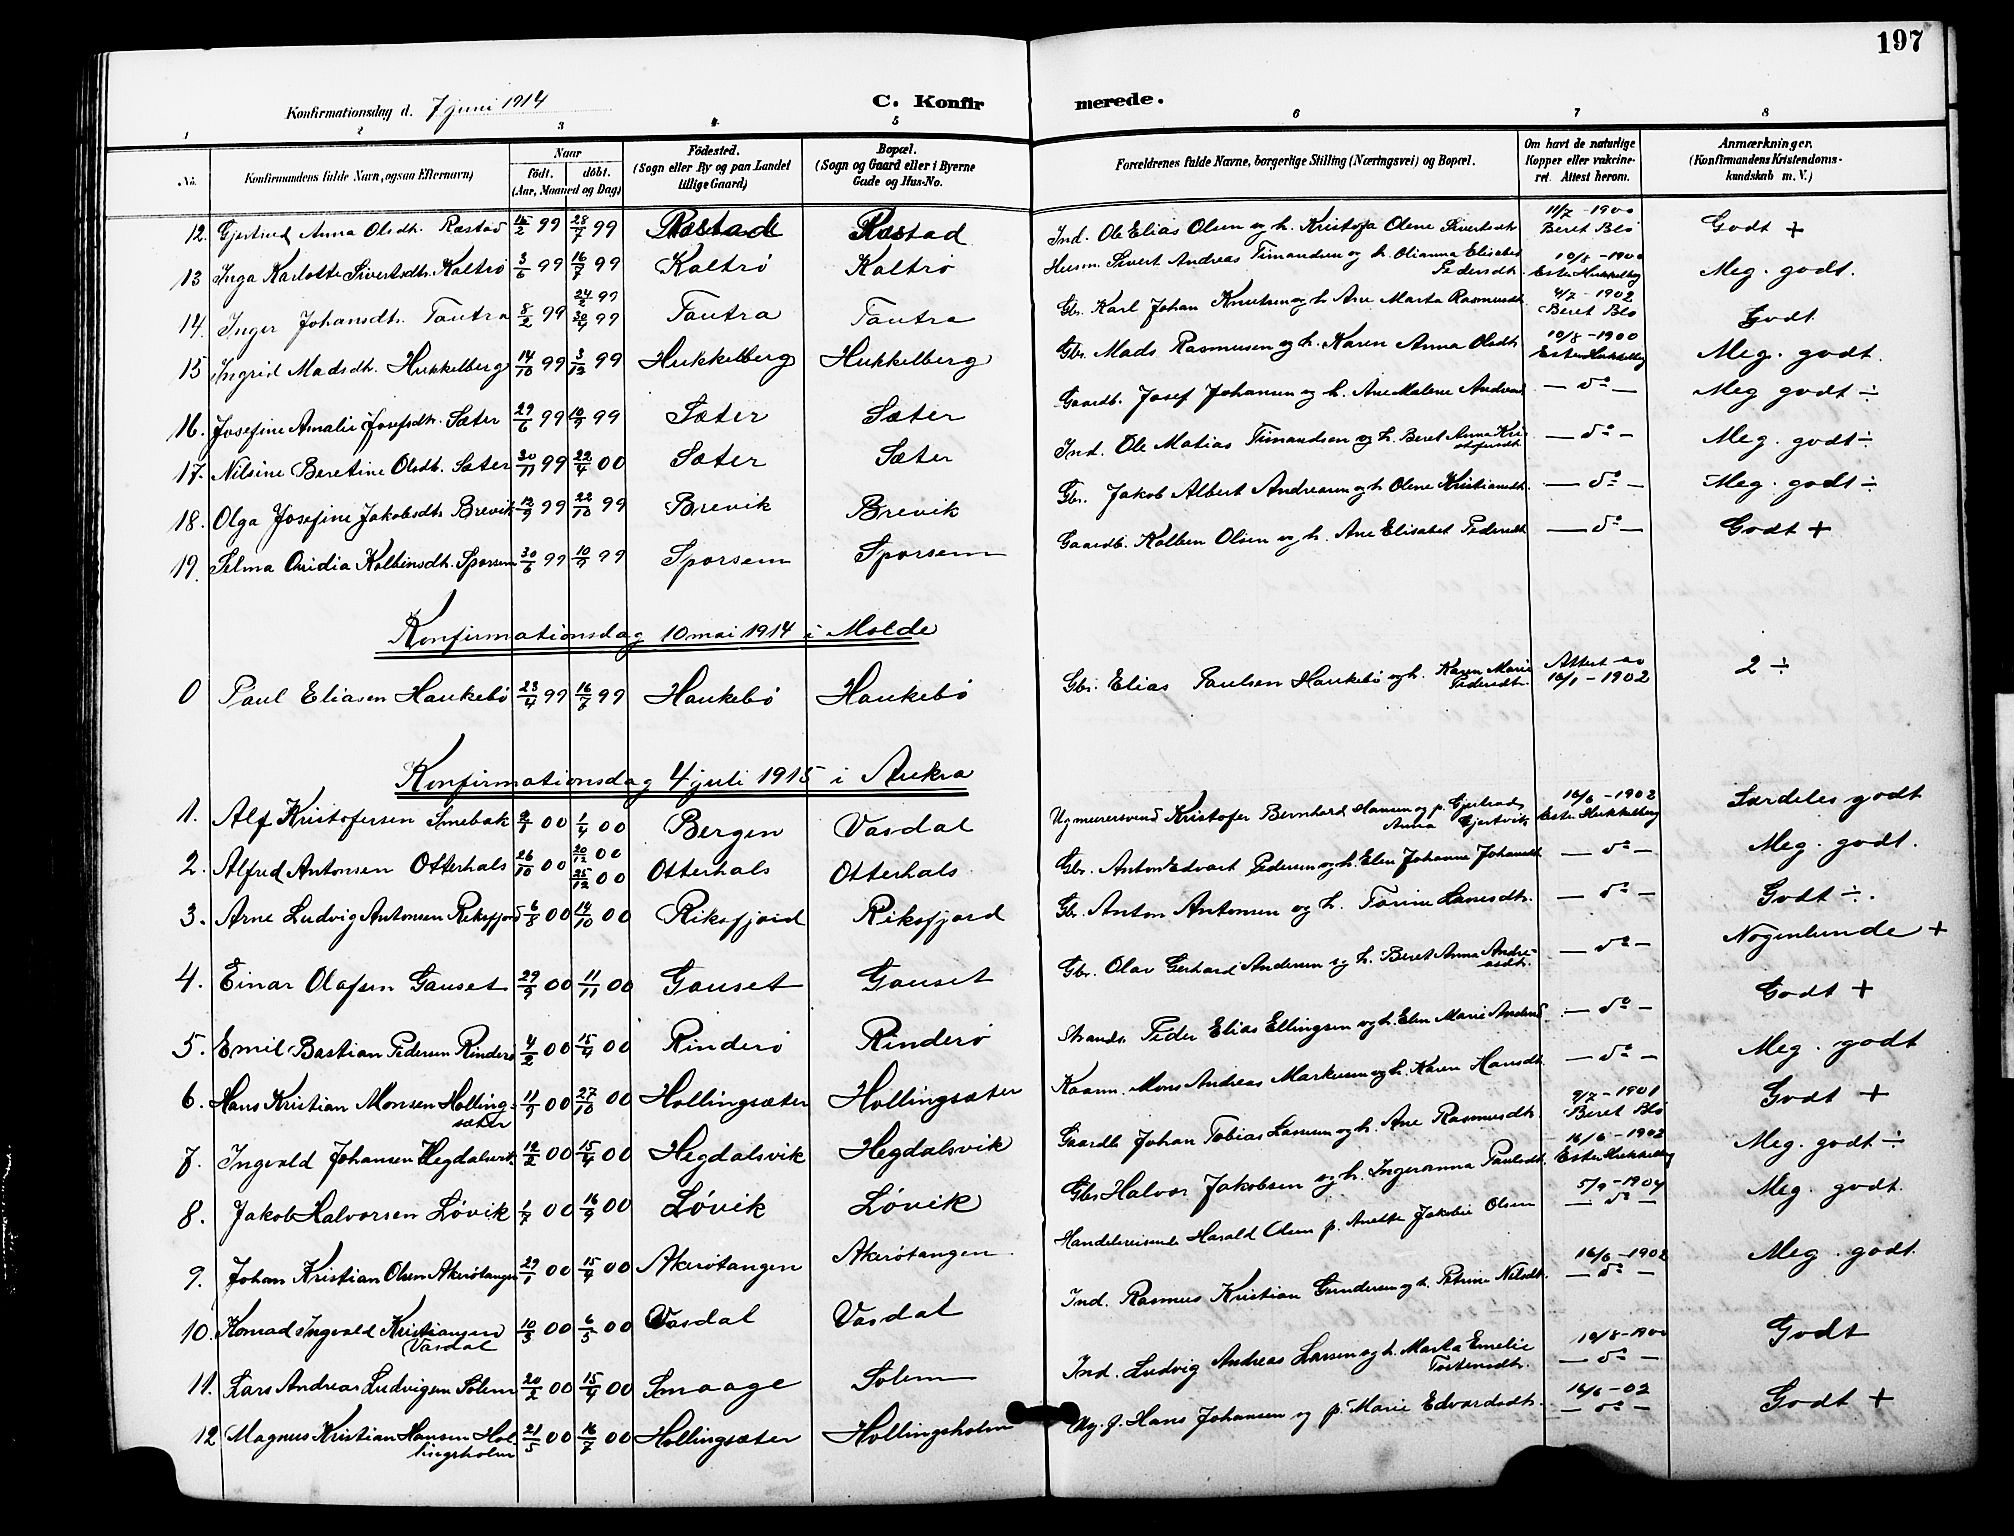 197
Konfirmationsdag d. 7 juni 1914 C. Konfirmerede.
1 2 3 4 5 6 7 8
No. Konfirmandens fulde Navn, ogsaa Efternavn) Naar født. døbt. (Aar, Maaned og Dag) Fødested. (Sogn eller By og paa Landet tillige Gaard) Bopæl. (Sogn og Gaard eller i Byerne Gade og Hus-No. Forældrenes fulde Navne, borgerlige Stilling (Næringsvei) og Bopæl. Om havt de naturlige Kopper eller vakcineret. Attest herom. Anmærkninger. (Konfirmandens Kristendomskundskab m. V.)
12. Gjertrud Anna Olsdtr. Ræstad 16/2 99 28/7 99 Ræstad Ræstad Ind. Ole Elias Olsen og h. Kristofa Olene Sivertsdtr 11/7 - 1900 Beret Blø Godt +
13 Inga Karlotte Sivertsdtr. Kaltrø 3/6 99 16/7 99 Kaltrø Kaltrø Husm. Sivert Andreas Timandsen og h. Olianna Elisabet Pedersdtr. 10/8 - 1900 Ester Hukkelberg Meg. godt.
14. Inger Johansdtr. Tautra 8/2 99 24/2 99 30/4 99 Tautra Tautra Gbr. Karl Johan Knutsen og h. Ane Marta Rasmusdt. 4/7 - 1902 Beret Blø Godt
15 Ingrid Madsdtr. Hukkelberg 14/10 99 3/12 99 Hukkelberg Hukkelberg Gbr. Mads Rasmusen og h. Karen Anna Olsdtr 10/8 - 1900 Ester Hukkelberg Meg. godt.
16. Josefine Amalie Josefsdtr. Sæter 29/6 99 10/9 99 Sæter Sæter Gaardb. Josef Johansen og h. Ane Malene Andreasd — do — Meg godt ÷
17. Nilsine Beretine Olsdtr. Sæter 30/11 99 22/4 00 Sæter Sæter Ind. Ole Matias Timandsen og h. Beret Anna Kristofersdt — do — Meg. godt ÷
18. Olga Josefine Jakobsdtr. Brevik 12/9 99 22/10 99 Brevik Brevik Gbr. Jakob Albert Andreasen og h. Olene Kristiansdt. — do — Meg. godt ÷
19. Selma Ovidia Kolbensdtr. Sporsem 30/6 99 10/9 99 Sporsem Sporsem Gaardb. Kolben Olsen og h. Ane Elisabet Pedersdt — do — Godt +
Konfirmationsdag 10 mai 1914 i Molde
0 Paul Eliasen Haukebø 23/4 99 16/6 99 Haukebø Haukebø Gbr. Elias Paulsen Haukebø og h. Karen Marie Pedersdtr. Attest av 16/1 - 1902 2 ÷
Konfirmationsdag 4 juli 1915 i Aukra
1. Alf Kristofersen Smebak 2/1 00 1/4 00 Bergen Vasdal Ug murersvend Kristofer Bernhard Hansen og p. Gjertrud Anna Gjertvik 16/6 - 1902 Ester Hukkelberg Særdeles godt
2. Alfred Antonsen Otterhals 26/10 00 20/12 00 25/12 00 Otterhals Otterhals Gbr. Anton Edvart Pedersen og h. Elen Johanne Johansdt — do — Meg. godt.
3. Arne Ludvig Antonsen Riksfjord 6/8 00 14/10 00 Riksfjord Riksfjord Gbr. Anton Antonsen og h. Torine Hansdtr. — do — Godt ÷.
4. Einar Olafsen Gauset 29/9 00 11/11 00 Gauset Gauset Gbr. Olav Gerhard Andersen og h. Beret Anna Andreasdt. — do — Nogenlunde +
5. Emil Bastian Pedersen Rinderø 4/2 00 15/4 00 Rinderø Rinderø Strands. Peder Elias Ellingsen og h. Elen Marie Andersd — do — Godt +
6. Hans Kristian Monsen Hollingsæter 11/9 00 27/10 00 Hollingsæter Hollingsæter Kaarm. Mons Andreas Markusen og h. Karen Hansdt. — do — Meg. godt
7. Ingvald Johansen Hegdalsvik 12/2 00 15/4 00 Hegdalsvik Hegdalsvik Gaardb Johan Tobias Larsen og h. Ane Rasmusdtr. 9/7 - 1901 Beret Blø Godt +
8. Jakob Halvorsen Løvik 1/7 00 16/9 00 Løvik Løvik Gbr Halvor Jakobsen og h. Ingeranna Paulsdt. 16/6 - 1902 Ester Hukkelberg Meg. godt ÷
9. Johan Kristian Olsen Akerøtangen 29/1 00 15/4 00 Akerøtangen Akerøtangen Handelsreisende Harald Olsen p. Anette Jakobie Olsen 5/9 - 1904 — do — Meg. godt.
10. Konrad Ingvald Kristiansen Vasdal 10/3 00 6/5 00 Vasdal Vasdal Ind. Rasmus Kristian Gundersen og h. Petrine Nilsdt. 16/6 - 1902 — do — Meg. godt.
11. Lars Andreas Ludvigsen Solem 20/2 00 15/4 00 Smaage Solem Ind. Ludvig Andreas Larsen og h. Marta Emelie Tostensdtr. 10/8 - 1900 — do — Godt
12 Magnus Kristian Hansen Hollingsholm 21/5 00 16/7 00 Hollingsæter Hollingsholm Ug. g. Hans Johansen og p. Marie Edvardsdtr. 16/6 - 02 — do — Godt +